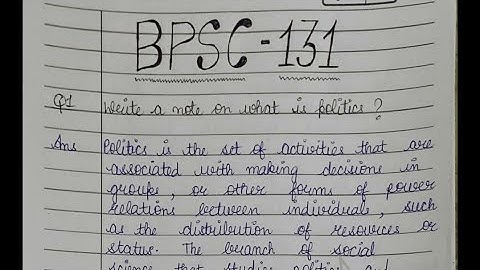 BPSC-131
Q1 Write a note on what is politics?
Ans Politics is the set of activities that are
associated with making decisions in
groups, or other forms of power
relations between individuals, such
as the distribution of resources or
status. The branch of social
science that studies politics and